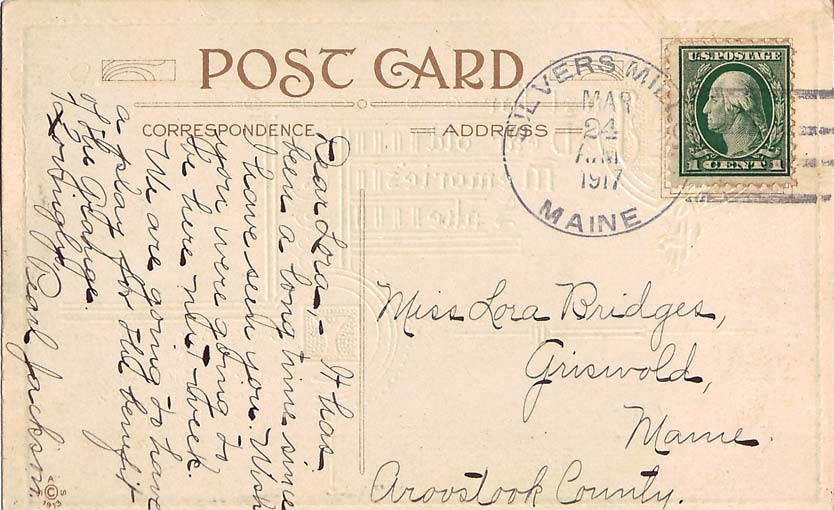 POST CARD
CORRESPONDENCE
ADDRESS
SILVERS MIL
MAR
24
A.M.
1917
MAINE
U.S. POSTAGE
1 CENT 1
Dear Lora,- It has
been a long time since
I have seen you. Wish
you were going to
be here next week.
We are going to have
a play for the benefit
of the Grange.
Lovingly,
Pearl Jackson.
Miss Lora Bridges,
Griswold,
Maine.
Aroostook County.
A
© S
1913